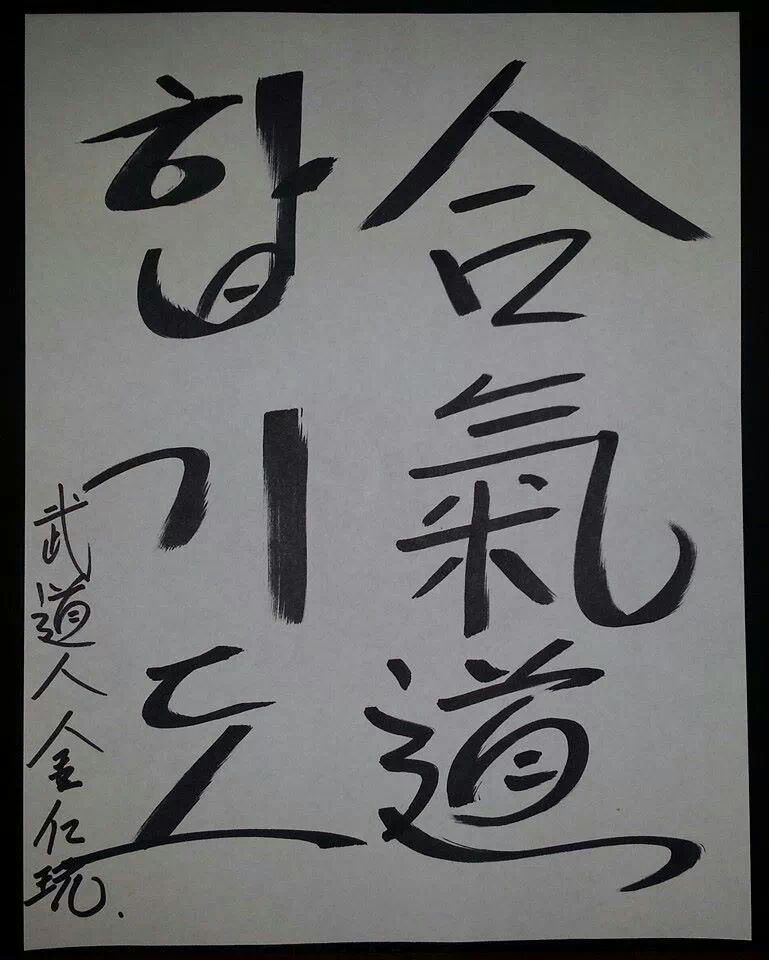 合氣道
합기도
武道人金仁珫.